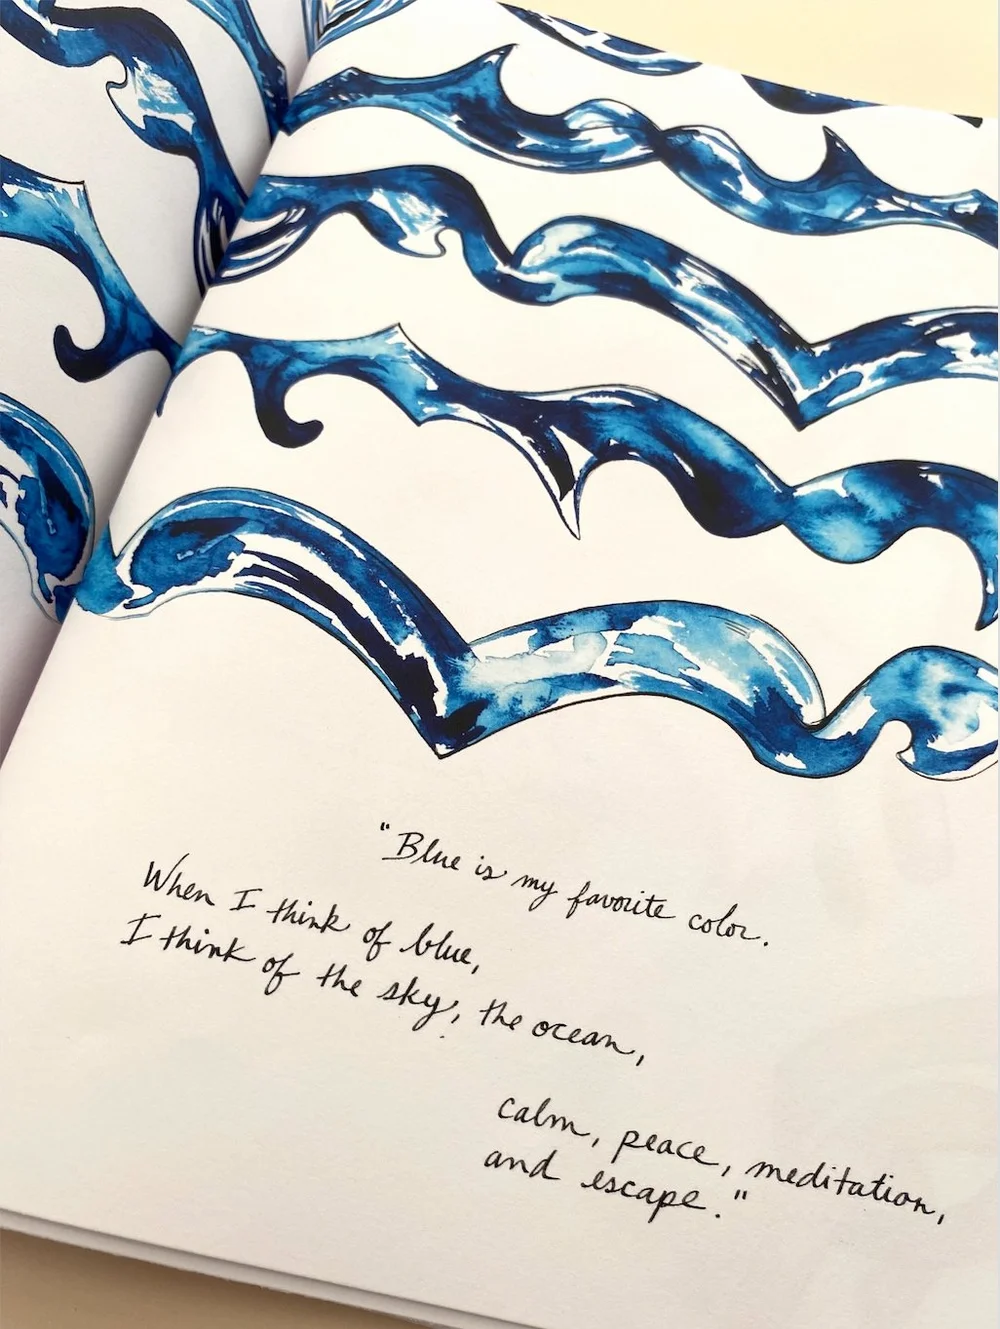 "Blue is my favorite color.
When I think of blue,
I think of the sky, the ocean,
calm, peace, meditation,
and escape."